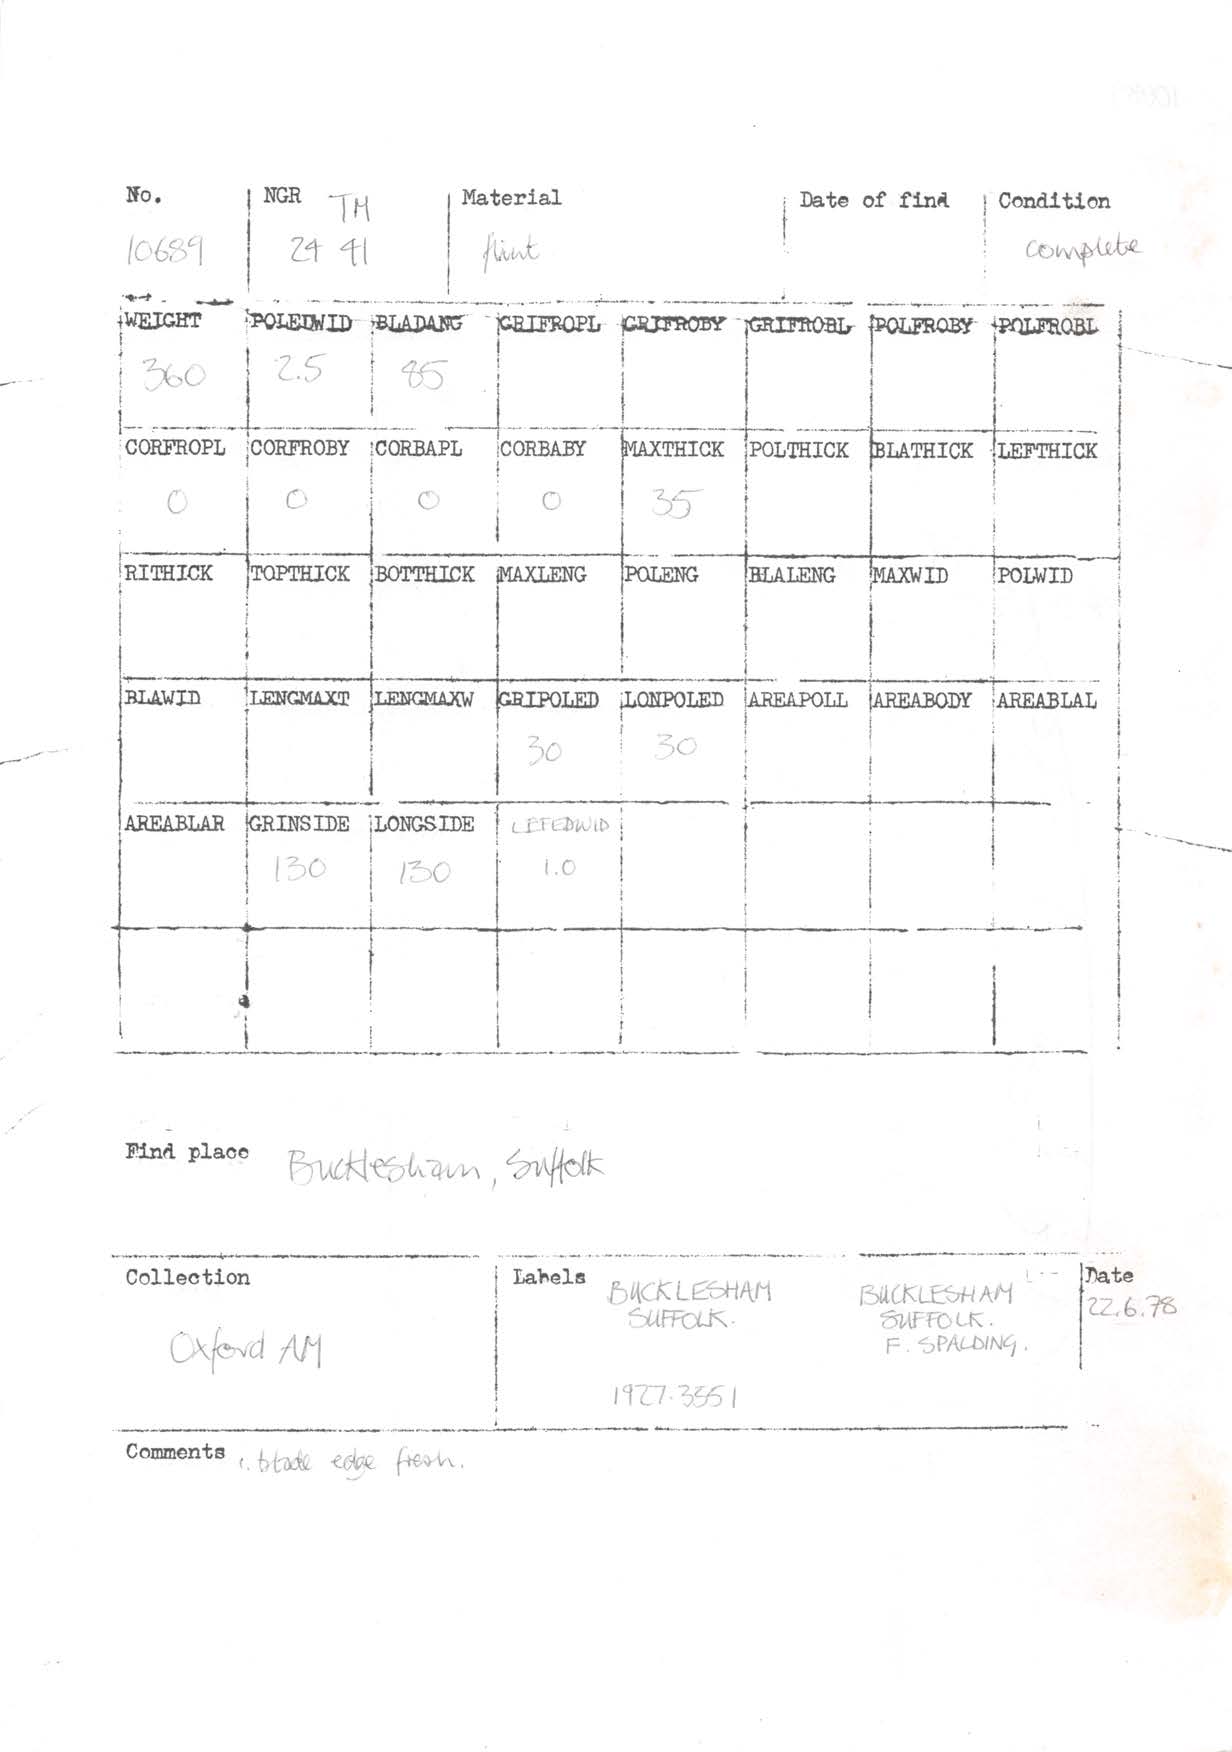 No. NGR TM Material Date of find Condition
10689 24 41 flint complete
WEIGHT POLEDWID BLADANG GRIFROPL GRIFROBY GRIFROBL POLFROBY POLFROBL
360 2.5 85
CORFROPL CORFROBY CORBAPL CORBABY MAXTHICK POLTHICK BLATHICK LEFTHICK
0 0 0 0 35
RITHICK TOPTHICK BOTTHICK MAXLENG POLENG BLALENG MAXWID POLWID
BLAWID LENGMAXT LENGMAXW GRIPOLED LONPOLED AREAPOLL AREABODY AREABLAL
30 30
AREABLAR GRINSIDE LONGSIDE LEFEDWID
130 130 1.0
Find place Bucklesham, Suffolk
Collection Labels BUCKLESHAM BUCKLESHAM Date
SUFFOLK. SUFFOLK. 22.6.78
Oxford AM F. SPALDING.
1927.3551
Comments 1. blade edge fresh.